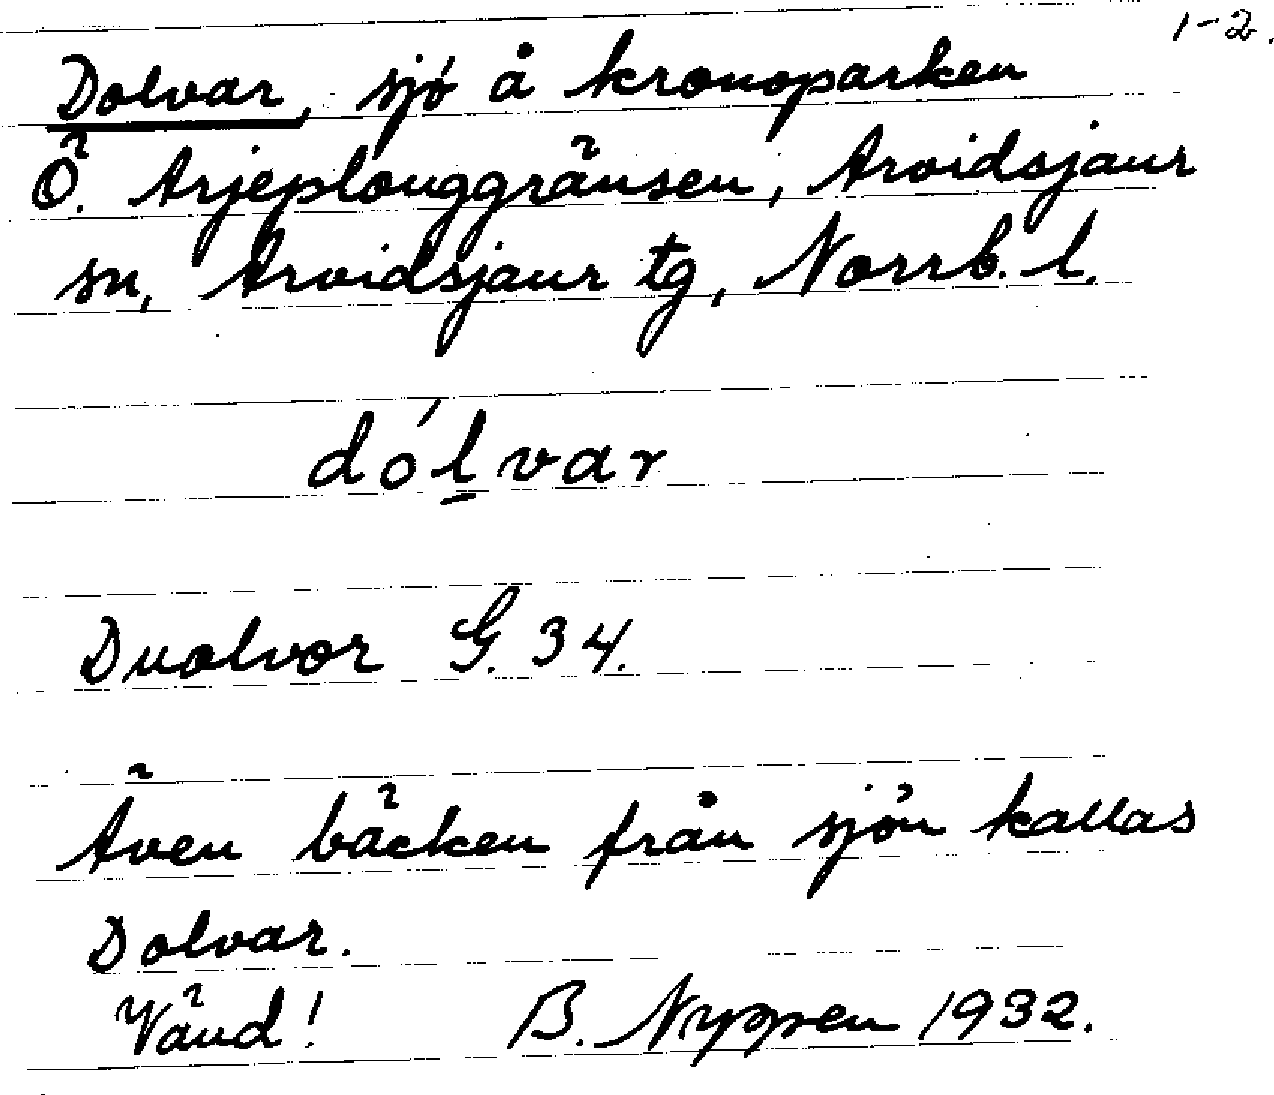 1-2.
Dolvar, sjö å kronoparken
Ö. Arjeplouggränsen, Arvidsjaur
sn, Arvidsjaur tg, Norrb. l.
dól̲var
Duolvor G. 34.
Även bäcken från sjön kallas
Dolvar.
Vänd! B. Nyppen 1932.